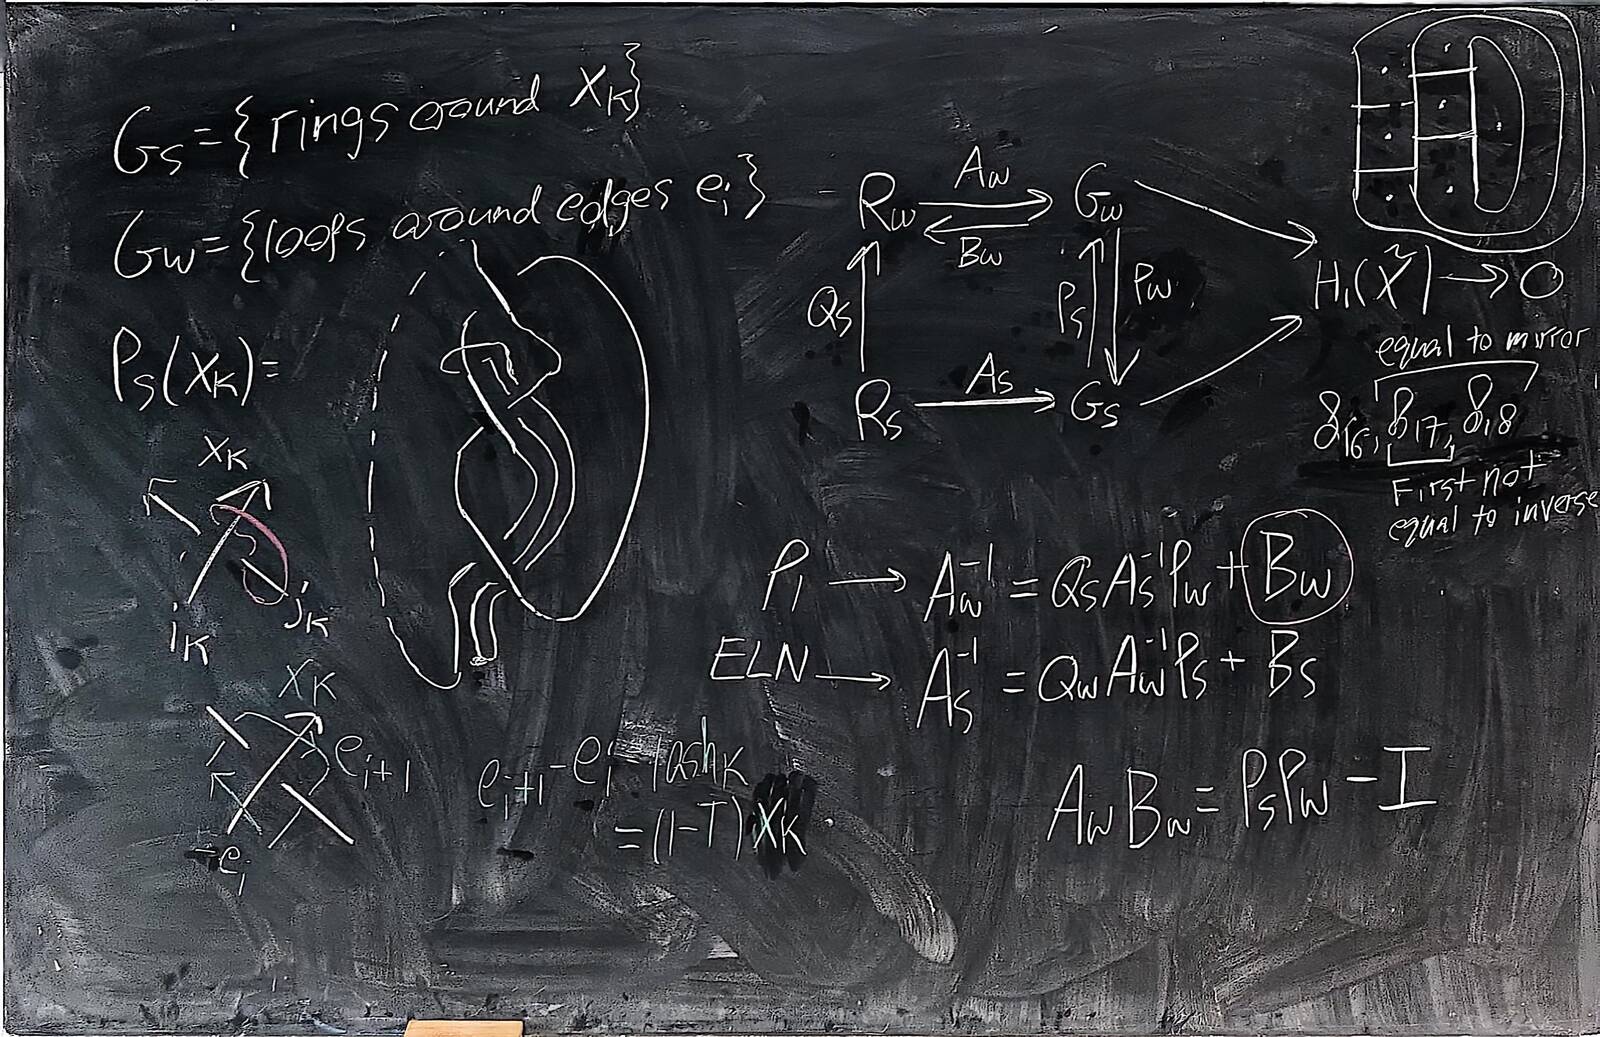 G_S = {rings around X_K}
G_w = {loops around edges e_i}
P_S(X_K) =
X_K
i_K
j_K
X_K
e_{i+1}
-e_i
e_{i+1} - e_i = lash_K
= (1-T) X_K
R_w
A_w
G_w
B_w
Q_S
P_S
P_w
R_S
A_S
G_S
H_1(X̃) → 0
equal to mirror
8_16, 8_17, 8_18
First not
equal to inverse
P1 → A_w^{-1} = Q_S A_S^{-1} P_w + B_w
ELN → A_S^{-1} = Q_w A_w^{-1} P_S + B_S
A_w B_w = P_S P_w - I